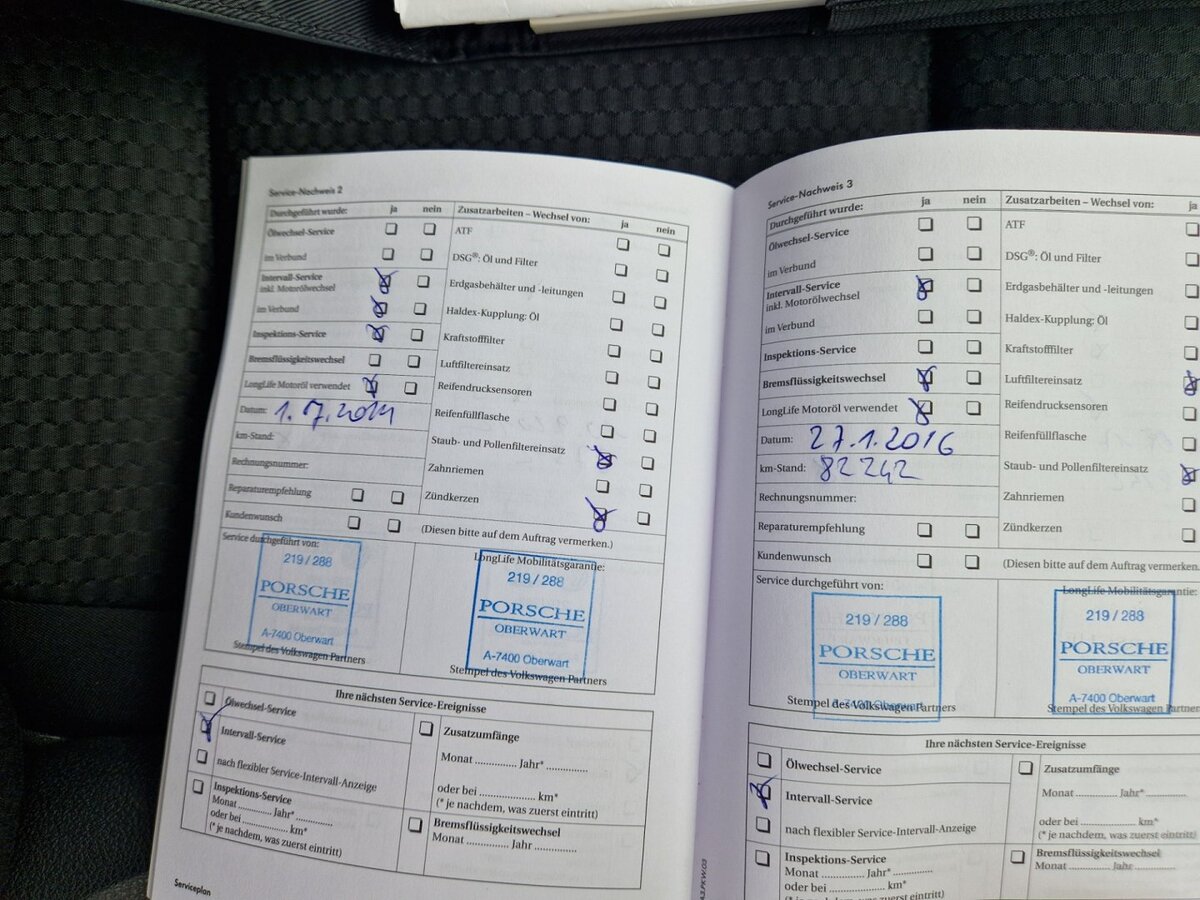 Service-Nachweis 2
Durchgeführt wurde: ja nein
Ölwechsel-Service
im Verbund
Intervall-Service
inkl. Motorölwechsel
im Verbund
Inspektions-Service
Bremsflüssigkeitswechsel
LongLife Motoröl verwendet
Datum: 1.7.2014
km-Stand:
Rechnungsnummer:
Reparaturempfehlung
Kundenwunsch
Zusatzarbeiten – Wechsel von: ja nein
ATF
DSG®: Öl und Filter
Erdgasbehälter und -leitungen
Haldex-Kupplung: Öl
Kraftstofffilter
Luftfiltereinsatz
Reifendrucksensoren
Reifenfüllflasche
Staub- und Pollenfiltereinsatz
Zahnriemen
Zündkerzen
(Diesen bitte auf dem Auftrag vermerken.)
Service durchgeführt von:
219 / 288
PORSCHE
OBERWART
A-7400 Oberwart
Stempel des Volkswagen Partners
LongLife Mobilitätsgarantie:
219 / 288
PORSCHE
OBERWART
A-7400 Oberwart
Stempel des Volkswagen Partners
Ihre nächsten Service-Ereignisse
Ölwechsel-Service
Intervall-Service
nach flexibler Service-Intervall-Anzeige
Inspektions-Service
Monat ............ Jahr* ............
oder bei .................. km*
(* je nachdem, was zuerst eintritt)
Zusatzumfänge
Monat ............ Jahr* ............
oder bei .................. km*
(* je nachdem, was zuerst eintritt)
Bremsflüssigkeitswechsel
Monat ............ Jahr ............
Serviceplan
Service-Nachweis 3
Durchgeführt wurde: ja nein
Ölwechsel-Service
im Verbund
Intervall-Service
inkl. Motorölwechsel
im Verbund
Inspektions-Service
Bremsflüssigkeitswechsel
LongLife Motoröl verwendet
Datum: 27.1.2016
km-Stand: 82242
Rechnungsnummer:
Reparaturempfehlung
Kundenwunsch
Zusatzarbeiten – Wechsel von: ja
ATF
DSG®: Öl und Filter
Erdgasbehälter und -leitungen
Haldex-Kupplung: Öl
Kraftstofffilter
Luftfiltereinsatz
Reifendrucksensoren
Reifenfüllflasche
Staub- und Pollenfiltereinsatz
Zahnriemen
Zündkerzen
(Diesen bitte auf dem Auftrag vermerken.
Service durchgeführt von:
219 / 288
PORSCHE
OBERWART
A-7400 Oberwart
Stempel des Volkswagen Partners
LongLife Mobilitätsgarantie:
219 / 288
PORSCHE
OBERWART
A-7400 Oberwart
Stempel des Volkswagen Partners
Ihre nächsten Service-Ereignisse
Ölwechsel-Service
Intervall-Service
nach flexibler Service-Intervall-Anzeige
Inspektions-Service
Monat ............ Jahr* ............
oder bei .................. km*
Zusatzumfänge
Monat ............ Jahr* ............
oder bei .................. km*
(* je nachdem, was zuerst eintritt)
Bremsflüssigkeitswechsel
Monat ............ Jahr ............